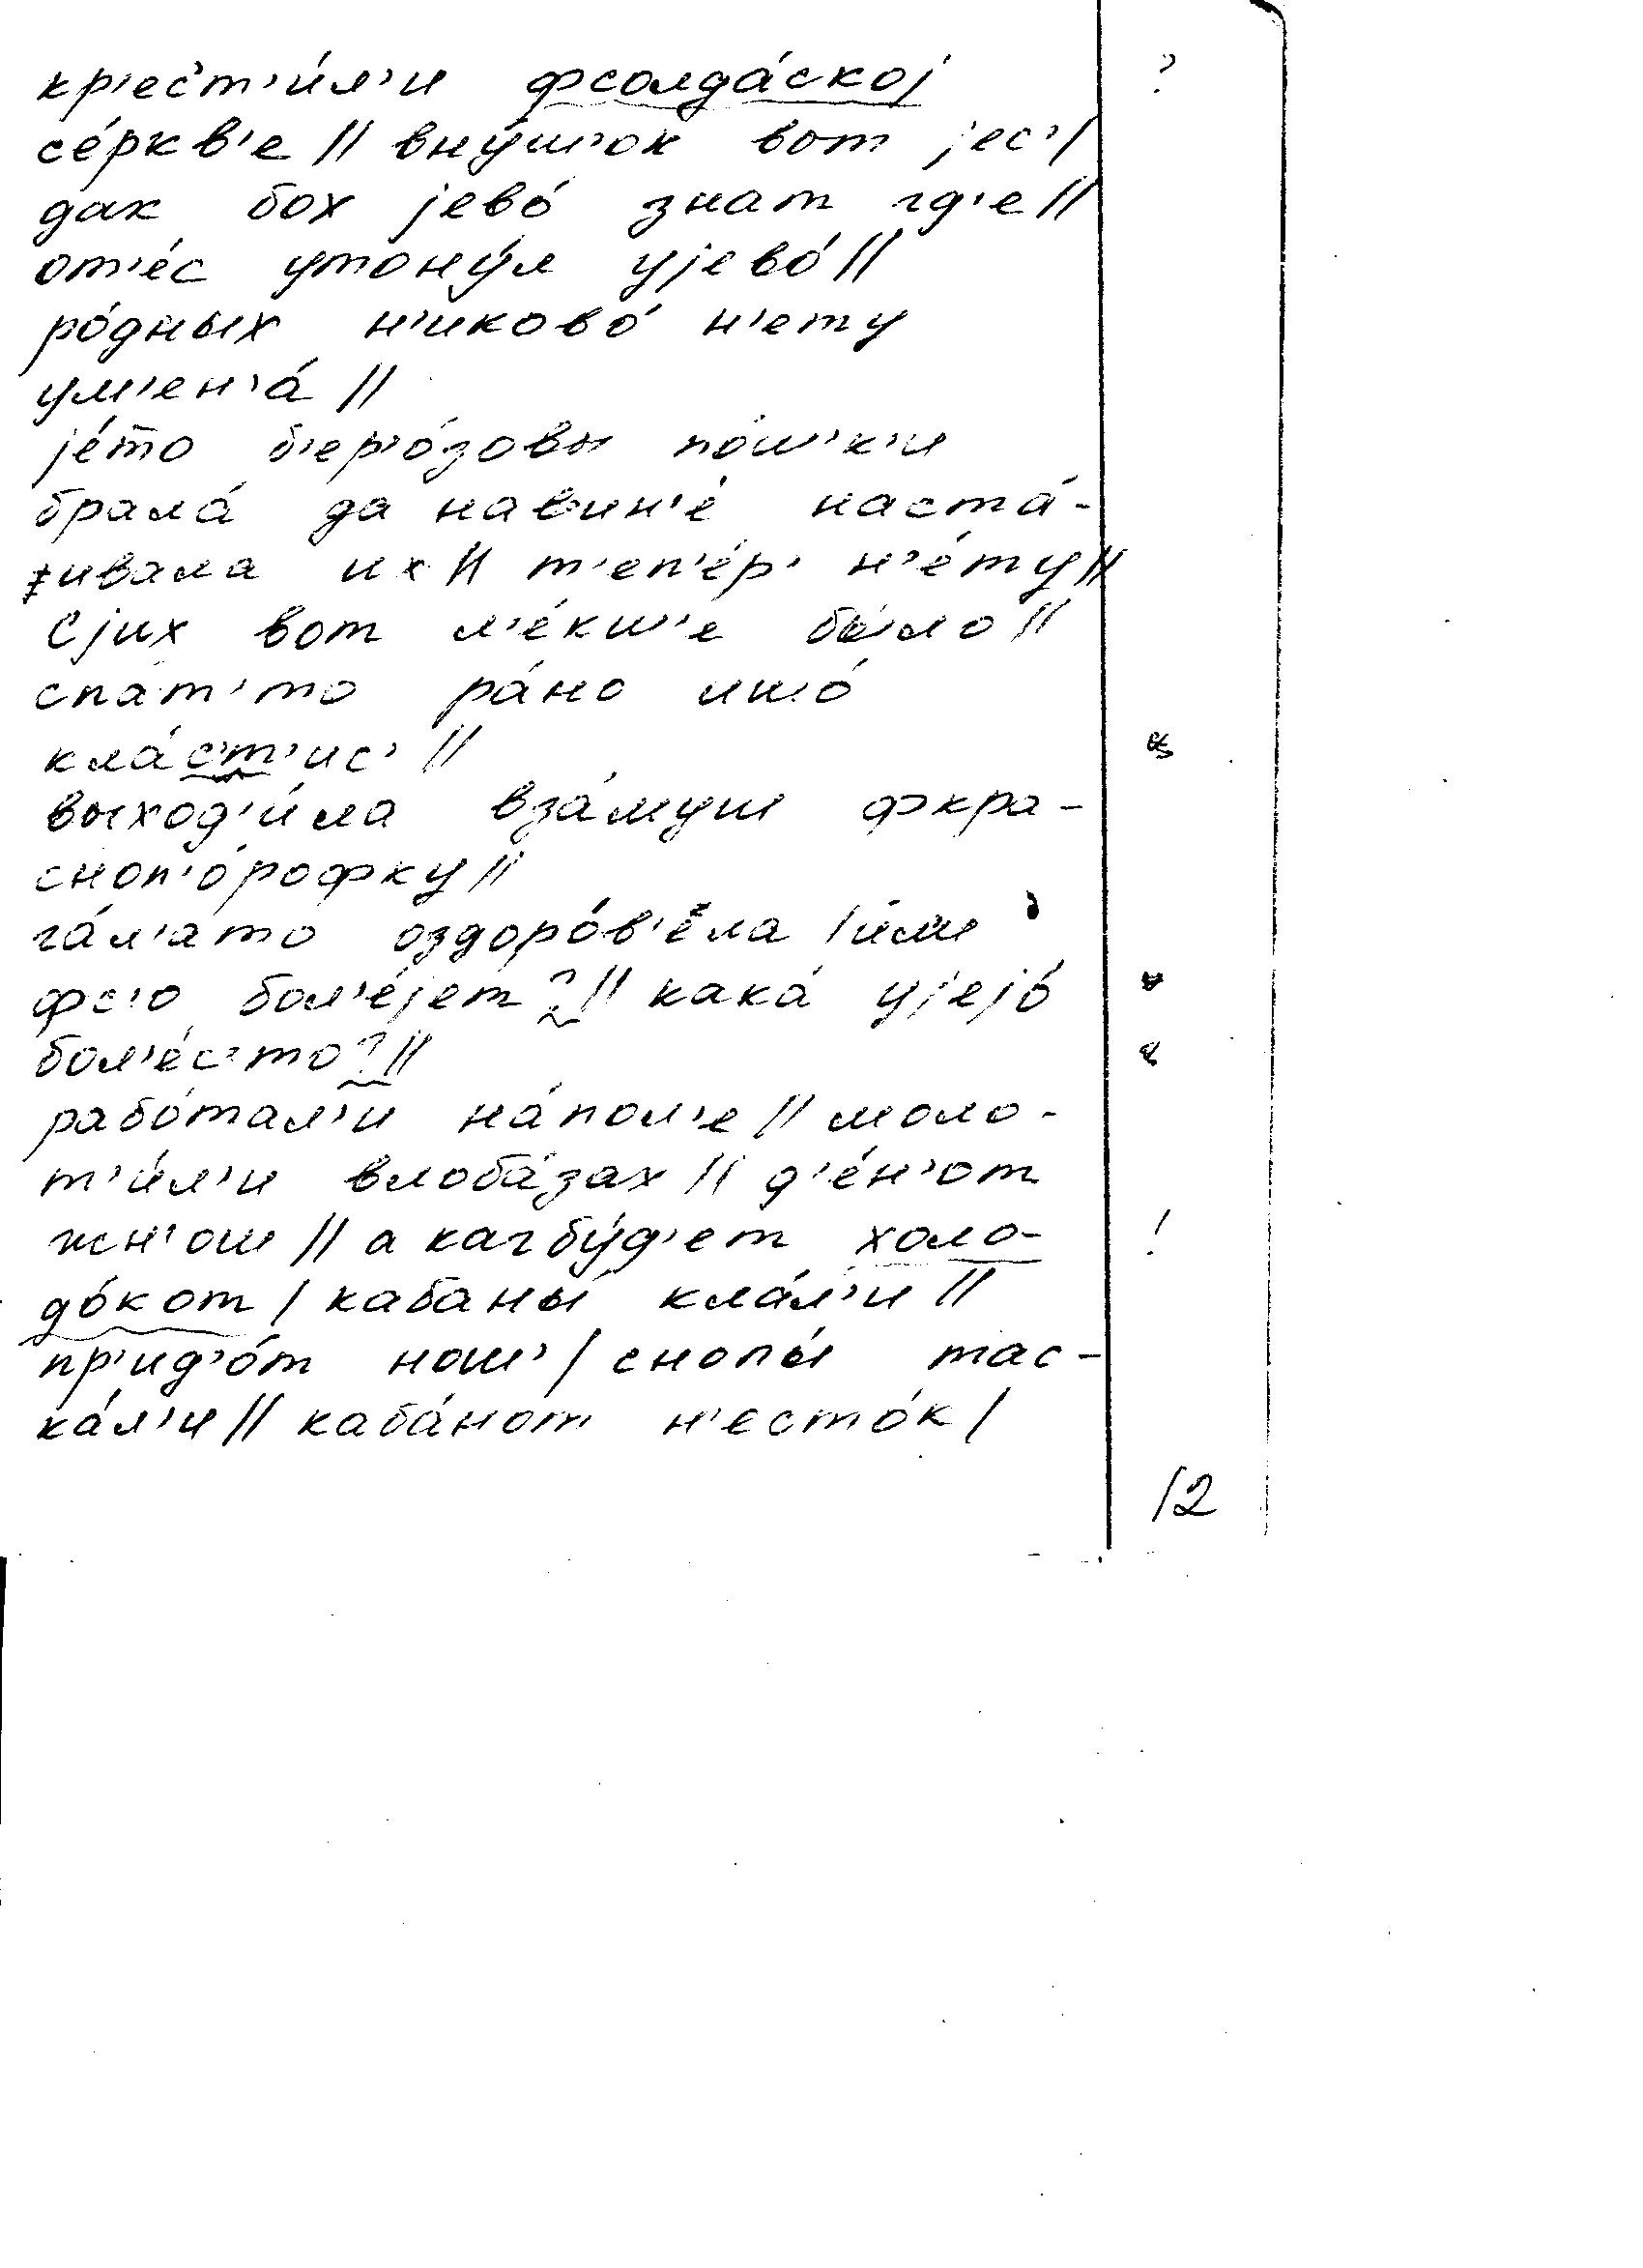 кр'ес'т'и́л'и фсолда́ској ?
се́ркв'е // вну́ш'ок вот јес' /
дак бох јево́ знат гд'е //
от'е́с утону́л ујево́ //
ро́дных н'иково́ н'ету
ум'ен'а́ //
је́то б'ер'о́зовы по́ш'к'и
брала́ да навин'е́ наста́-
ивала их // т'еп'е́р' н'е́ту //
Сјих вот л'е́кш'е бы́ло //
спат'то ра́но ишо́
кла́с'т'ис' //
выход'и́ла вза́муш фкра-
сноп'о́рофку //
га́л'ато оздоро́в'ела / и́ли
фс'о бол'е́јет? // кака́ ујејо́
бол'е́с'то? //
рабо́тал'и на́пол'е // моло-
т'и́л'и влоба́зах // д'е́н'от
жн'ош // а кагбу́д'ет холо- !
до́кот / кабаны́ кла́л'и //
пр'ид'о́т нош' / снопы́ тас-
ка́л'и // каба́нот н'есто́к /
12